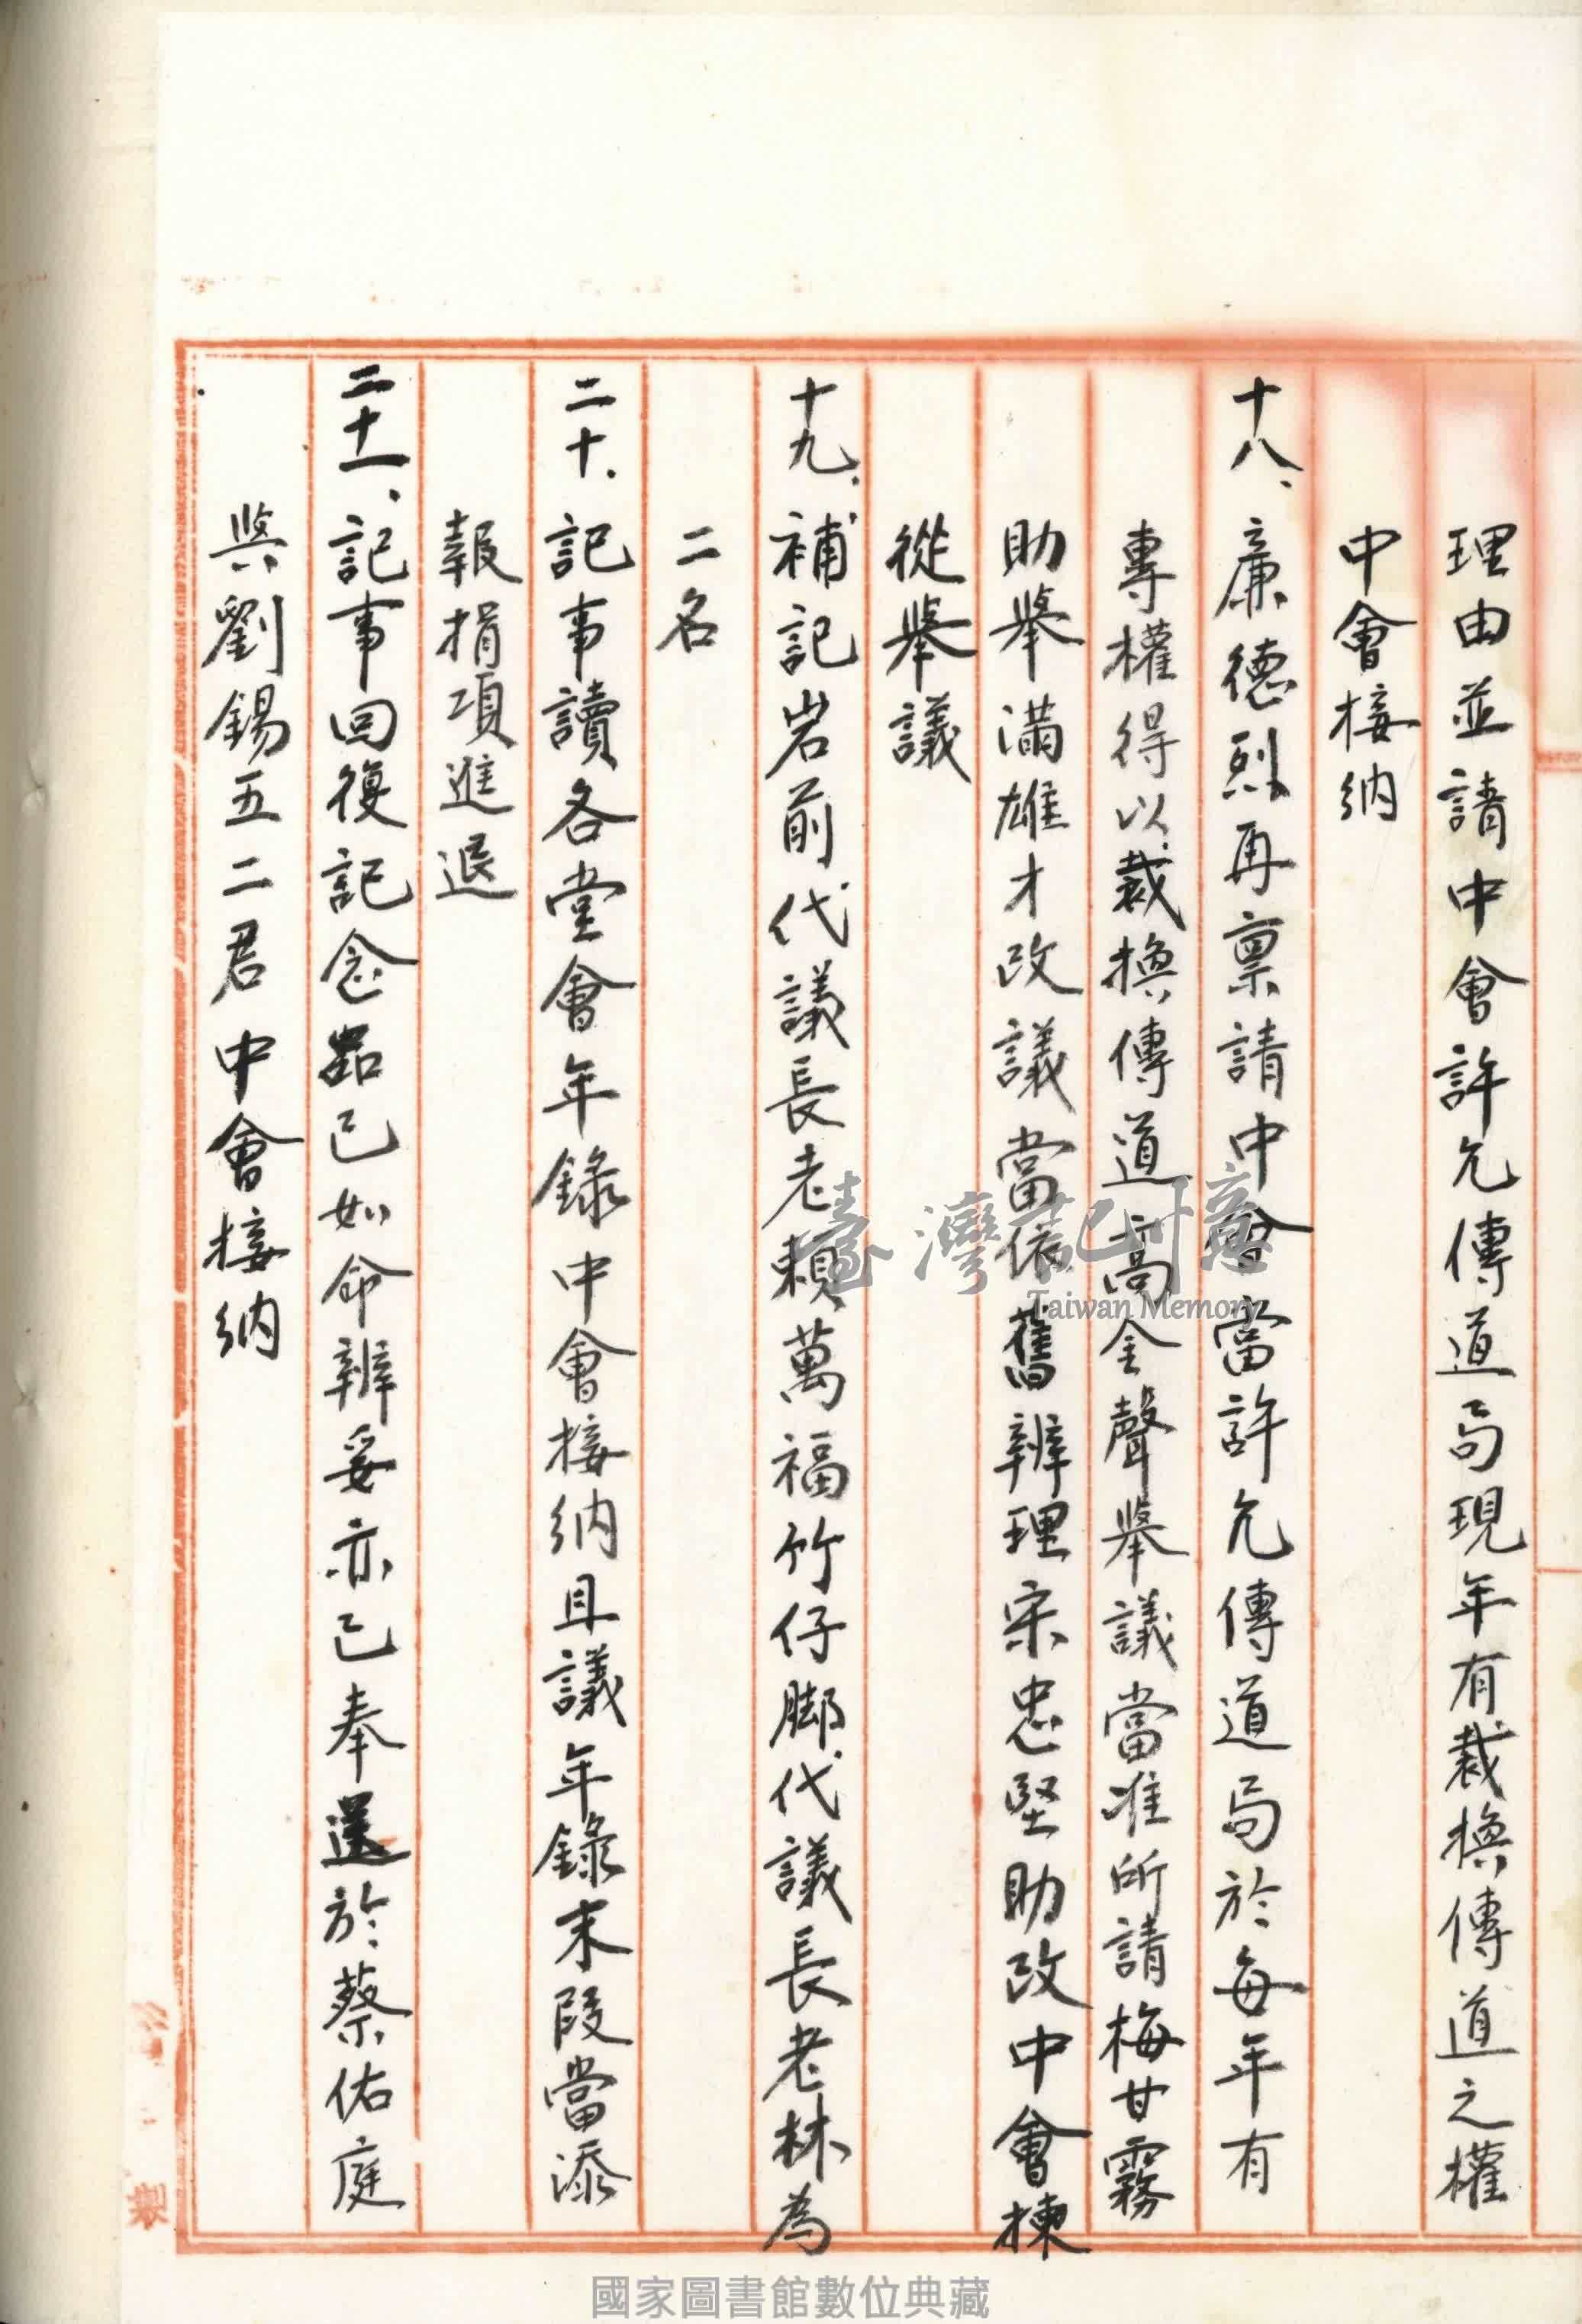 理由並請中會許允傳道局現年有裁換傳道之權
中會接納
十八、廉德烈再稟請中會當許允傳道局於每年有
專權得以裁換傳道高金聲舉議當准所請梅甘霧
助舉滿雄才改議當依舊辨理宋忠堅助改中會揀
從舉議
十九、補記岩前代議長老賴萬福竹仔脚代議長老林為
二名
二十、記事讀各堂會年錄中會接納且議年錄末段當添
報捐項進退
二十一、記事回復記念品已如命辨妥亦已奉送於蔡佑庭
與劉錫五二君中會接納
臺灣記憶
Taiwan Memory
國家圖書館數位典藏